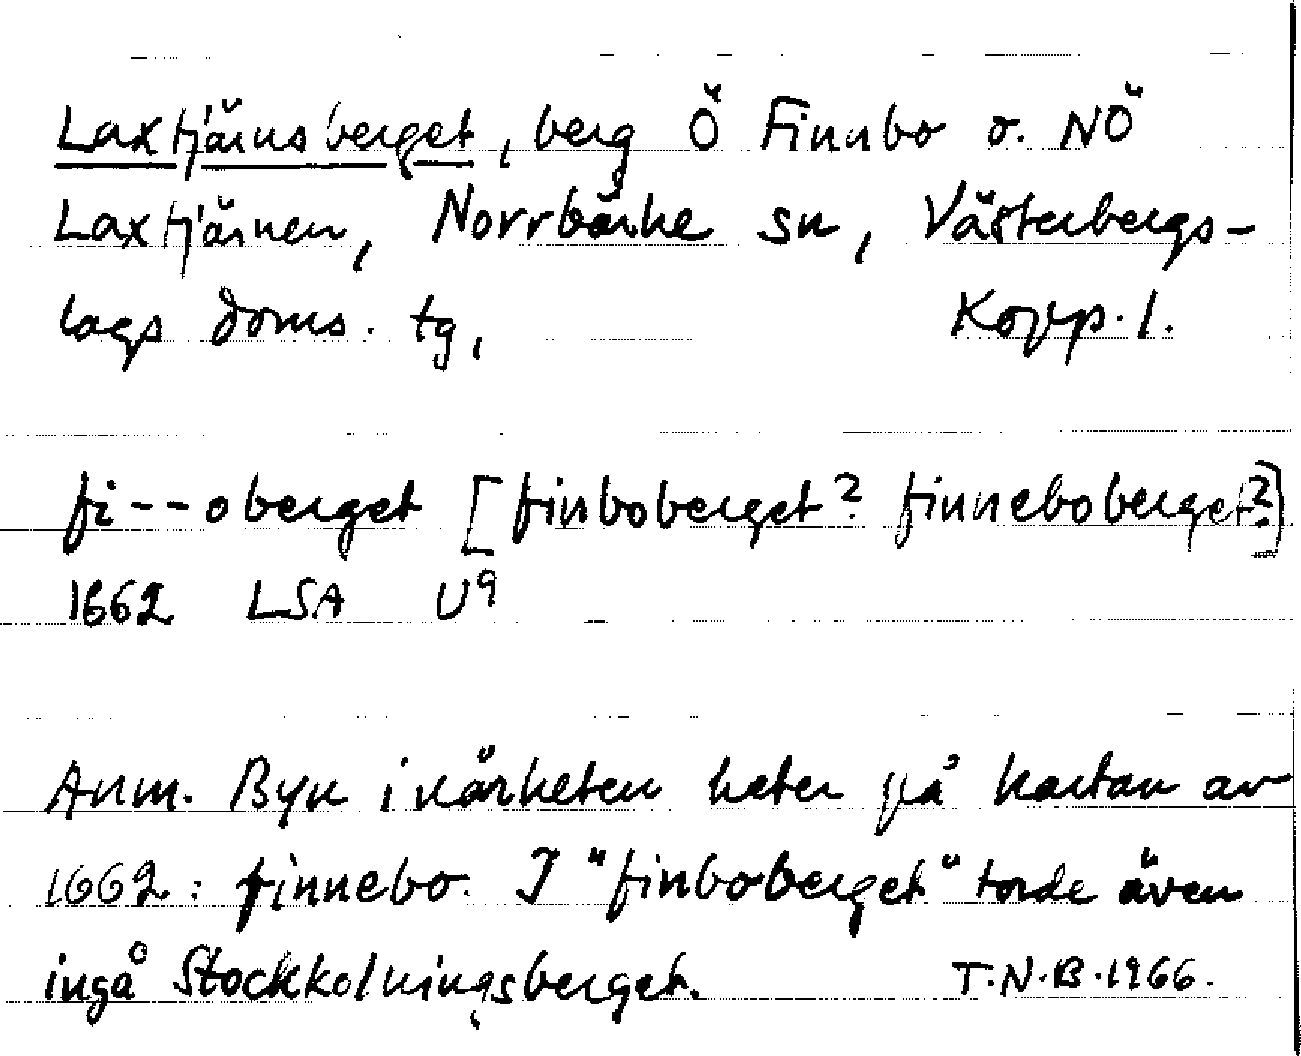 Laxtjärnsberget, berg Ö Finnbo o. NÖ
Laxtjärnen, Norrbärke sn, Västerbergs-
lags doms. tg, Kopp. l.
fi--oberget [finboberget? finneboberget?]
1662 LSA U9
Anm. Byn i närheten heter på kartan av
1662: finnebo. I "finboberget" torde även
ingå Stockkolningsberget. T.N.B. 1966.